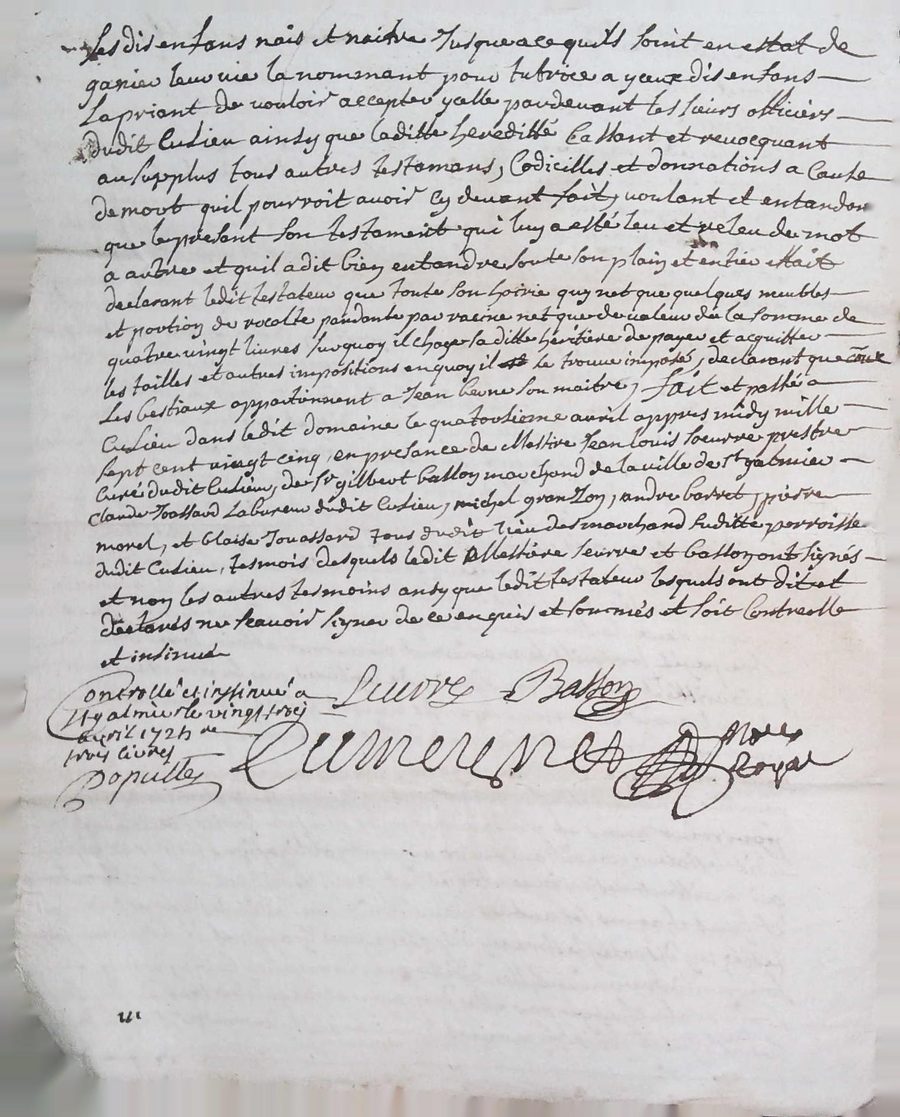 lesdis enfans nais et naitre Jusque a ce quils soint en estat de
ganier leur vie la nommant pour tutrice a yceux dis enfans
La priant de vouloir accepter ycelle pardevant les sieurs officiers
dudit Cusieu ainsy que laditte hereditté Cassant et revocquant
au surpplus tous autres testamans, Codicilles et donnations a Cause
de mort quil pourroit avoir Cy devant fait, voulant et entandan
que le presant son testament qui luy a esté leu et releu de mot
a autre et quil a dit bien entandre sorte son plain et entier effait
declarant ledit testateur que toute son hoirie quy net que quelques meubles
et portion de recolte pandante par racine net que de valeur de la somme de
quatre vingt livres surquoy il charge saditte héritiere de payer et acquitter
les tailles et autres impositions en quoy il se trouve imposé, declarant que
Les bestiaux appartiennent a Jean son maitre, fait et passé a
Cusieu dans ledit domaine le quatorsieme avril appres midy mille
sept cent vingt cinq, en presance de Messire Jean Louis Seurre prestre
Curé dudit Cusieu, de Sr gilbert basson marchand de la ville de St galmier
Claude Joassard Laboreur dudit Cusieu, michel granzon, andre barret, pierre
morel, et blaise Jouassard tous dudit lieu des marchand susditte parroisse
dudit Cusieu, tesmois desquels ledit Messire Seurre et basson ont signés
et non les autres tesmoins ansy que ledit testateur lesquels ont dit et
declarés ne scavoir signer de ce enquis et sommés et soit Controllé
et insinué
Seurre Basson
Controllé et insinué a
St galmier le vingt trois
avril 1725 re
trois livres
Populle
Dumereynet Nore
Royal